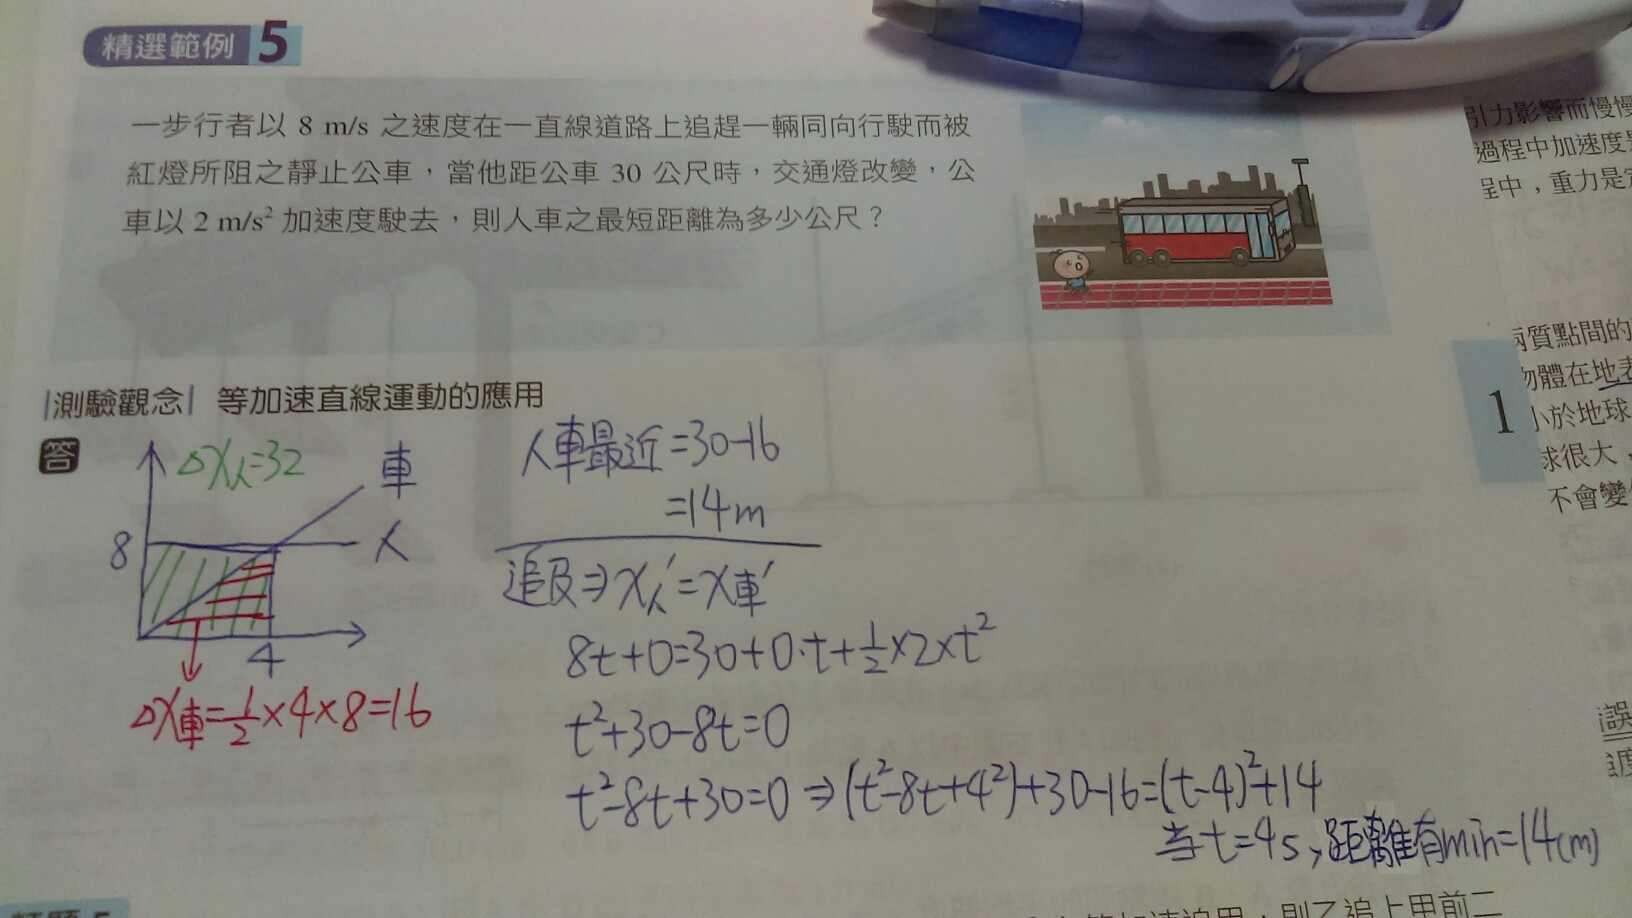 精選範例 5
一步行者以 8 m/s 之速度在一直線道路上追趕一輛同向行駛而被
紅燈所阻之靜止公車，當他距公車 30 公尺時，交通燈改變，公
車以 2 m/s² 加速度駛去，則人車之最短距離為多少公尺？
測驗觀念 等加速直線運動的應用
答
Δx人=32
車
人
8
4
Δx車=1/2×4×8=16
人車最近=30-16
=14m
追及⇒x人'=x車'
8t+0=30+0·t+1/2×2×t²
t²+30-8t=0
t²-8t+30=0⇒(t²-8t+4²)+30-16=(t-4)²+14
当t=4s，距離有min=14(m)
引力影響而慢慢
過程中加速度
程中，重力是
兩質點間的
物體在地表
1
小於地球
球很大，
不會變
誤
則乙追上甲前二